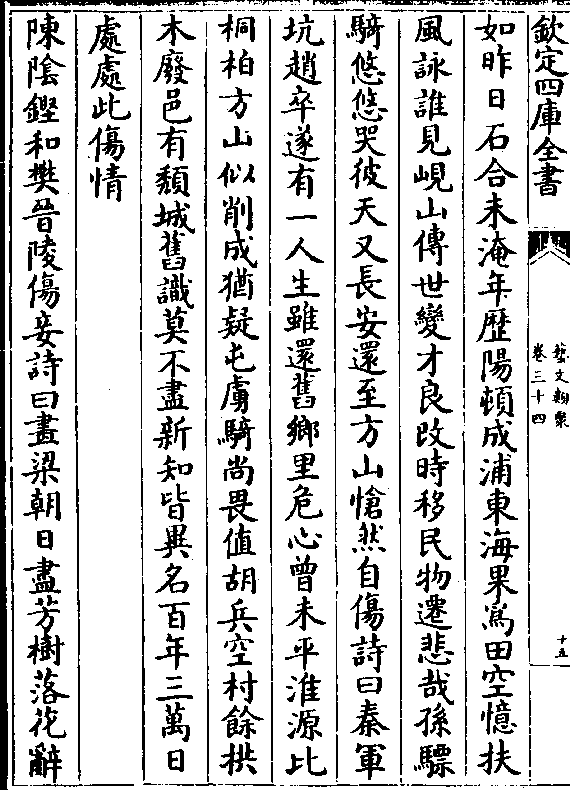 欽定四庫全書
藝文類聚
卷三十四
十五
如昨日石合未淹年歴陽頓成浦東海果為田空憶扶
風詠誰見峴山傳世變才良改時移民物遷悲哉孫驃
騎悠悠哭彼天又長安還至方山愴然自傷詩曰秦軍
坑趙卒遂有一人生雖還舊鄉里危心曾未平淮源比
桐柏方山似削成猶疑屯虜騎尚畏值胡兵空村餘拱
木廢邑有頽城舊識莫不盡新知皆異名百年三萬日
處處此傷情
陳陰鏗和樊晉陵傷妾詩曰畫梁朝日盡芳樹落花辭